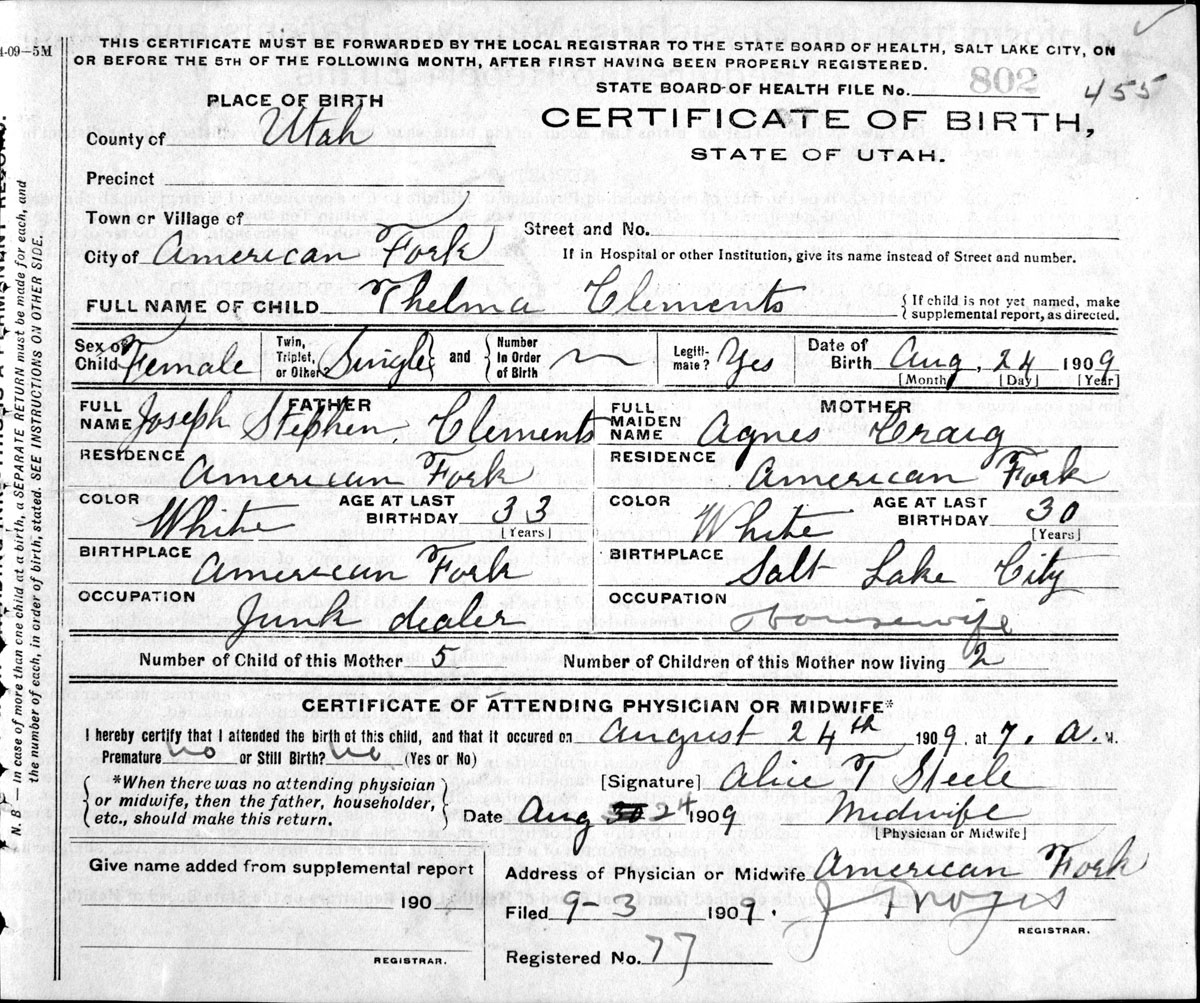 4-09—5M
THIS CERTIFICATE MUST BE FORWARDED BY THE LOCAL REGISTRAR TO THE STATE BOARD OF HEALTH, SALT LAKE CITY, ON
OR BEFORE THE 5TH OF THE FOLLOWING MONTH, AFTER FIRST HAVING BEEN PROPERLY REGISTERED.
STATE BOARD OF HEALTH FILE No. 802 455
PLACE OF BIRTH
CERTIFICATE OF BIRTH,
STATE OF UTAH.
County of Utah
Precinct
Town or Village of
Street and No.
City of American Fork
If in Hospital or other Institution, give its name instead of Street and number.
FULL NAME OF CHILD Thelma Clements
{ If child is not yet named, make
supplemental report, as directed.
Sex of Child Female
Twin, Triplet, or Other Single and Number In Order of Birth
Legiti-mate? Yes
Date of Birth Aug. 24 1909
[Month] [Day] [Year]
FATHER
FULL NAME Joseph Stephen Clements
MOTHER
FULL MAIDEN NAME Agnes Craig
RESIDENCE American Fork
RESIDENCE American Fork
COLOR White AGE AT LAST BIRTHDAY 33 [Years]
COLOR White AGE AT LAST BIRTHDAY 30 [Years]
BIRTHPLACE American Fork
BIRTHPLACE Salt Lake City
OCCUPATION Junk dealer
OCCUPATION Housewife
Number of Child of this Mother 5 Number of Children of this Mother now living 2
CERTIFICATE OF ATTENDING PHYSICIAN OR MIDWIFE*
I hereby certify that I attended the birth of this child, and that it occured on August 24th 1909, at 7. A. M.
Premature no or Still Birth? no (Yes or No)
*When there was no attending physician
or midwife, then the father, householder,
etc., should make this return.
[Signature] Alice T Steele
Date Aug 24 1909 Midwife
[Physician or Midwife]
Give name added from supplemental report
190
REGISTRAR.
Address of Physician or Midwife American Fork
Filed 9-3 1909.
REGISTRAR.
Registered No. 77
N. B.—In case of more than one child at a birth, a SEPARATE RETURN must be made for each, and
the number of each, in order of birth, stated. SEE INSTRUCTIONS ON OTHER SIDE.